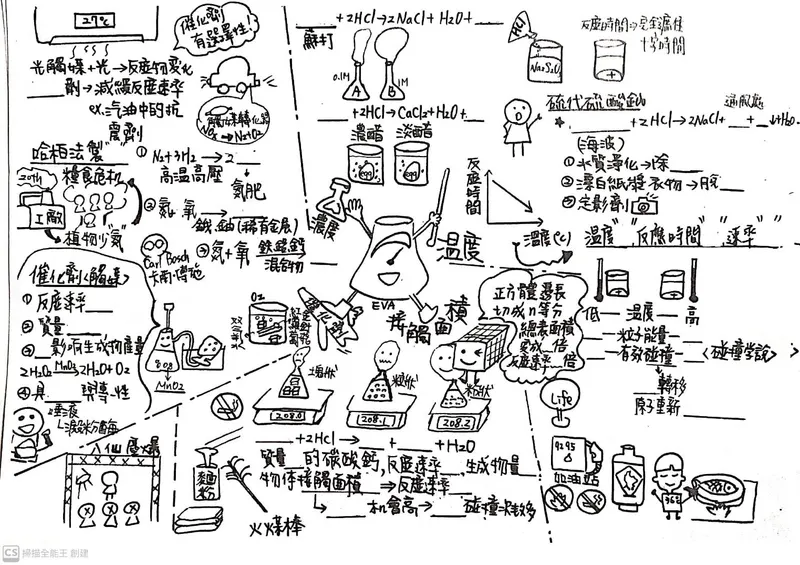 27℃
催化劑
有選擇性!
光觸媒+光→反應物變化
___劑→減緩反應速率
ex.汽油中的抗
震劑
觸媒轉化器
NOx → N2+O2
哈柏法製"
① N2+3H2→2___
高溫高壓
氮肥
20th
糧食危機
工廠
植物少"氮"
② 氮、氫
鋨、鈾(稀有金屬)
Carl Bosch
卡爾·博施
③ 氮+氫
鐵
混合物
催化劑<觸媒>
① 反應速率___
② 質量___
③ ___影响生成物產量
2H2O2 MnO2 2H2O+O2
④ 具___專一性
MnO2
唾液
O2
雙氧水
催化劑
八仙塵爆
___+2HCl→2NaCl+H2O+___
蘇打
0.1M
1M
A
B
___+2HCl→CaCl2+H2O+___
濃醋
淡醋
egg
egg
濃度
EVA
溫度
接觸面積
反應時間
溫度(℃)
HCl
Na2S2O3
十字時間
硫代硫酸鈉
通風處
___+2HCl→2NaCl+__+__↓+H2O
(海波)
① 水質淨化→除___
② 漂白紙漿、衣物→脫___
③ 定影劑
溫度" "反應時間" "速率"
低—溫度—高
—粒子能量—
—有效碰撞—
<碰撞學說>
轉移
原子重新___
正方體邊長
切成n等分
總表面積
變成__倍
反應速率__倍
塊狀
粒狀
粉狀
208.0
208.1
208.2
___+2HCl→___+___+H2O
質量___的碳酸鈣,反應速率___,生成物量___
物体接觸面積___⇒反應速率___
→___机會高→___碰撞次數多
麵粉
火煤棒
Life
92 95
加油站
CS 掃描全能王 創建